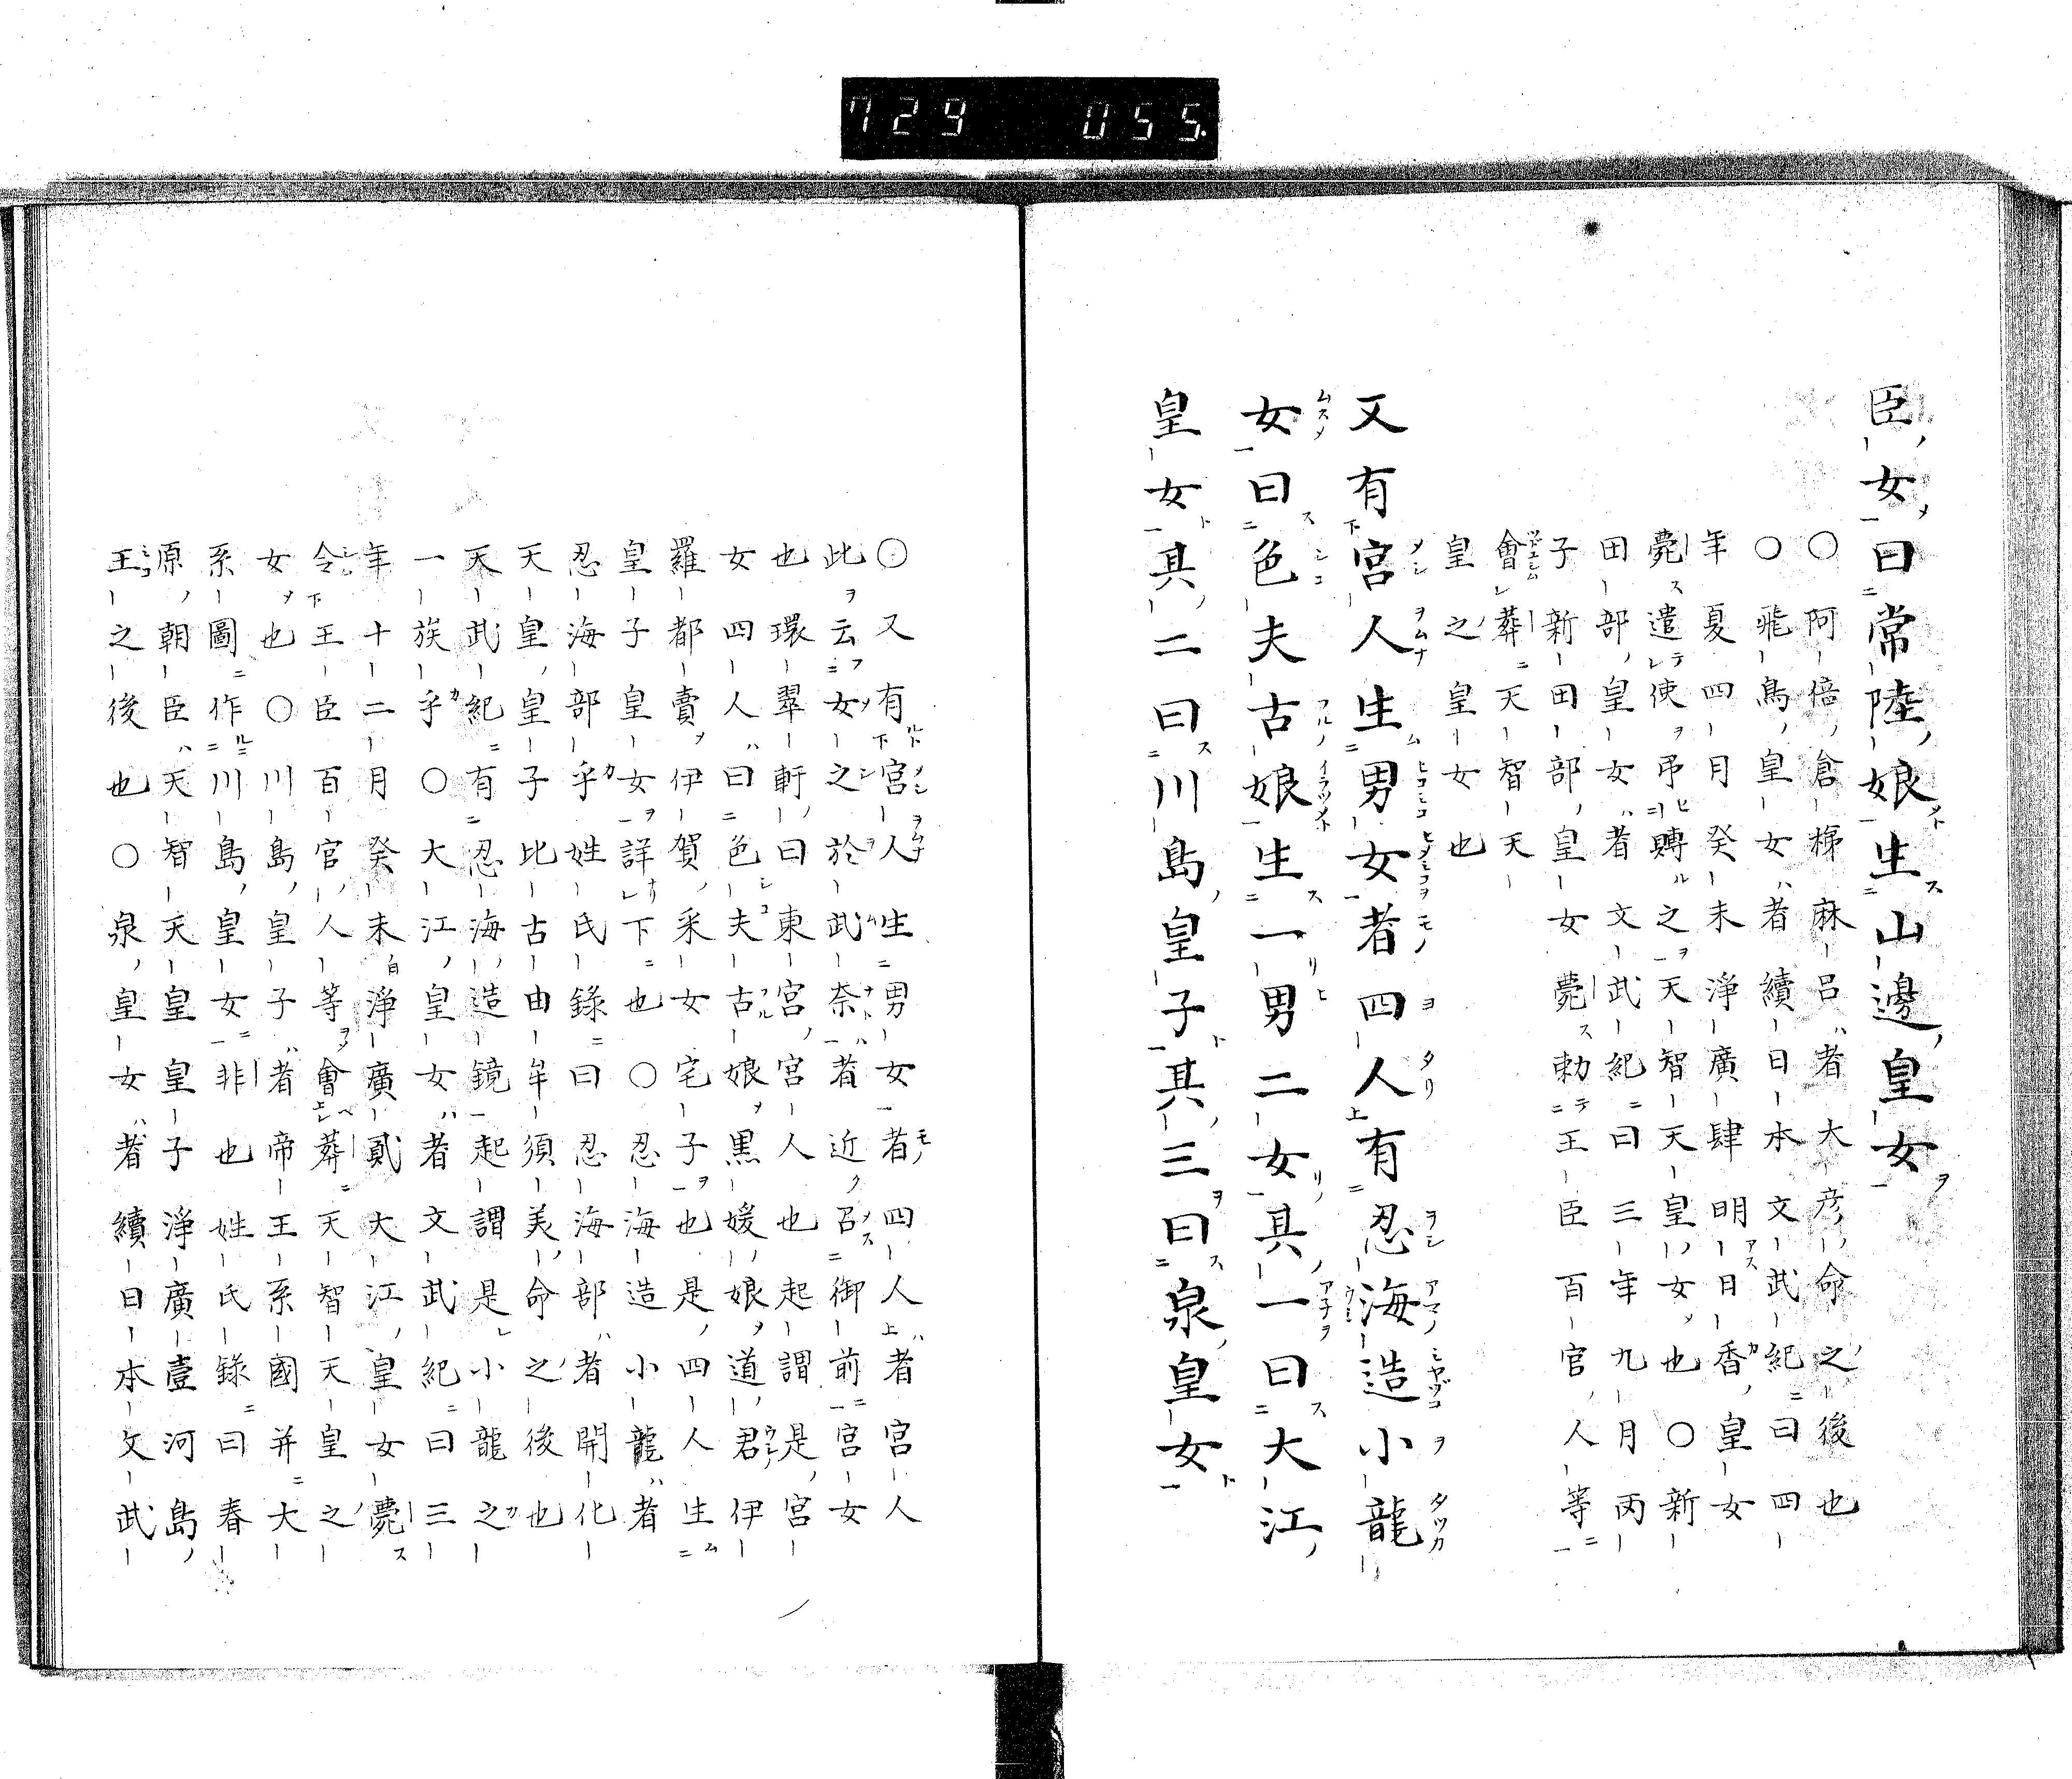 729 055
臣女曰常陸娘生山邊皇女
〇阿倍倉梯麻呂者大彦命之後也
〇飛鳥皇女者續日本文武紀曰四
年夏四月癸未淨廣肆明日香皇女
薨遣使弔賻之天智天皇女也〇新
田部皇女者文武紀曰三年九月丙
子新田部皇女薨勅王臣百官人等
會葬天智天
皇之皇女也
又有宮人生男女者四人有忍海造小龍
女曰色夫古娘生一男二女其一曰大江
皇女其二曰川島皇子其三曰泉皇女
〇又有宮人生男女者四人者宮人
此云女之於武奈者近召御前宮女
也環翠軒曰東宮宮人也起謂是宮
女四人曰色夫古娘黒媛娘道君伊
羅都賣伊賀采女宅子也是四人生
皇子皇女詳下也〇忍海造小龍者
忍海部乎姓氏錄曰忍海部者開化
天皇皇子比古由牟須美命之後也
天武紀有忍海造鏡起謂是小龍之
一族乎〇大江皇女者文武紀曰三
年十二月癸未淨廣貳大江皇女薨
令王臣百官人等會葬天智天皇之
女也〇川島皇子者帝王系國并大
系圖作川島皇女非也姓氏錄曰春
原朝臣天智天皇皇子淨廣壹河島
王之後也〇泉皇女者續日本文武